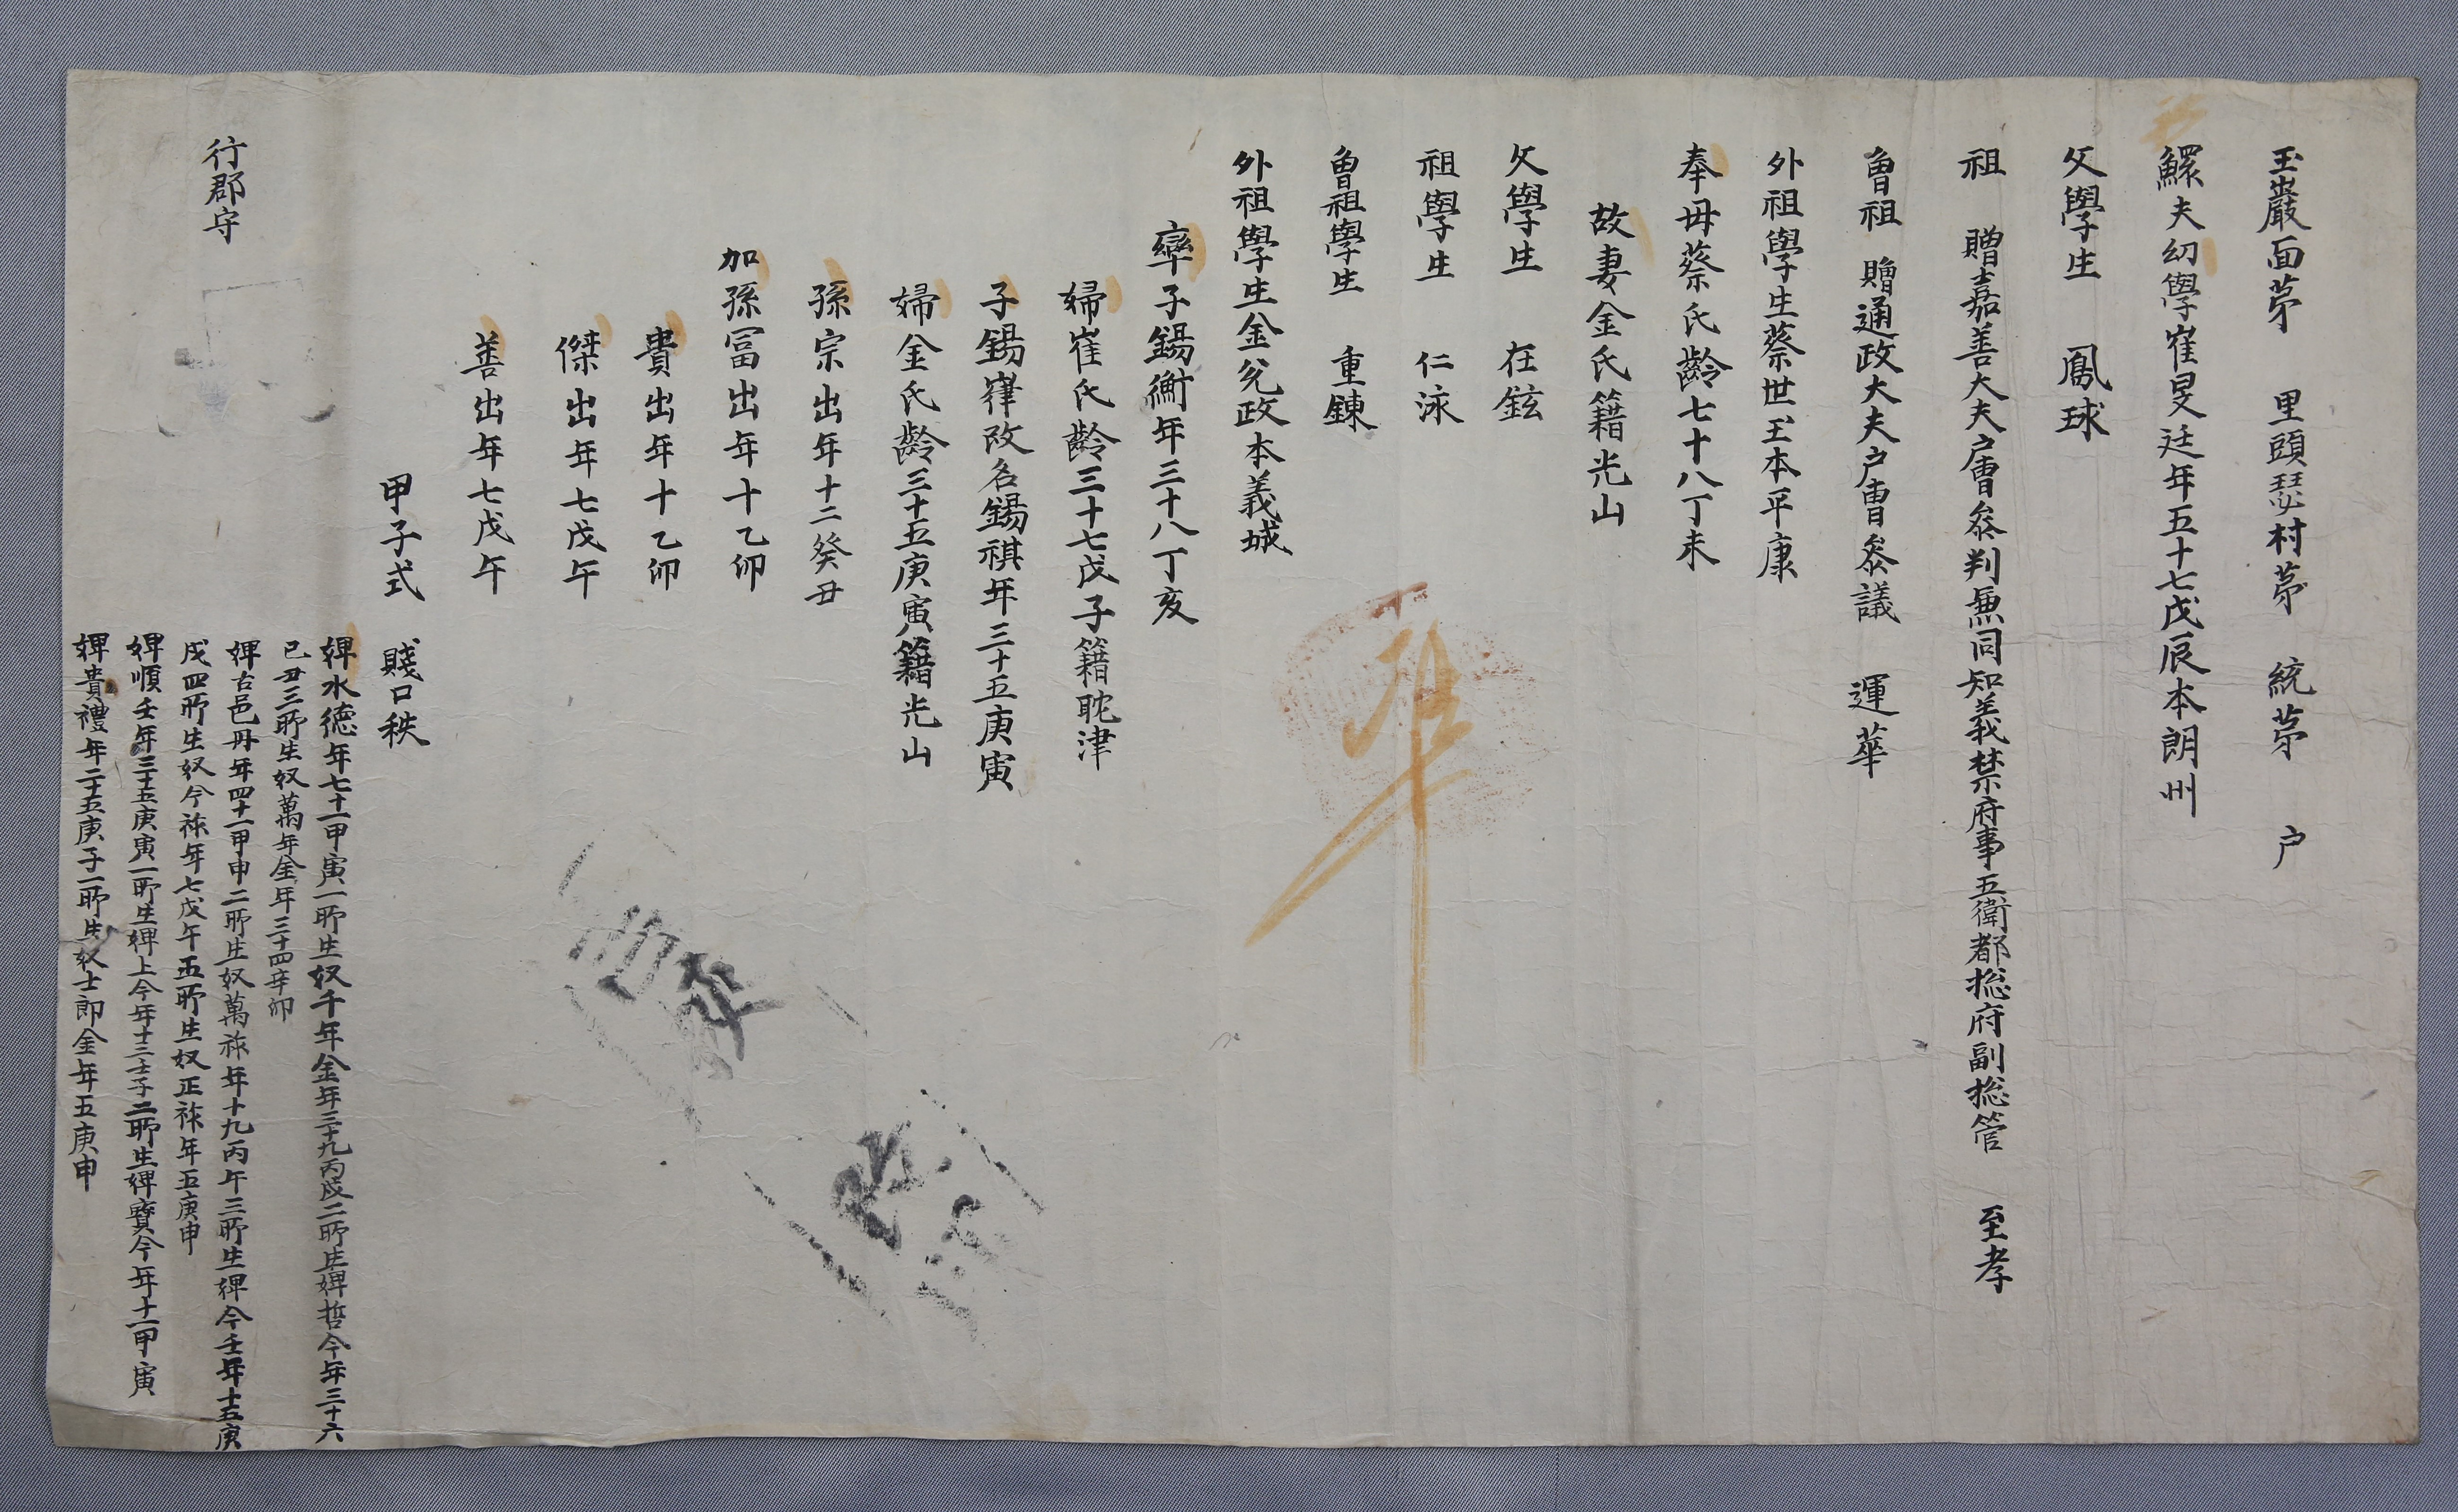 玉巖面茅　里頭瑟村茅　統茅　户
鰥夫幼學崔旻廷年五十七戊辰本朗州
父學生　鳳球
祖　贈嘉善大夫户曺叅判兼同知義禁府事五衛都摠府副摠管　至孝
曾祖　贈通政大夫户曺叅議　運華
外祖學生蔡世玉本平康
奉母蔡氏齡七十八丁未
故妻金氏籍光山
父學生　在鉉
祖學生　仁泳
曾祖學生　重鍊
外祖學生金兊政本義城
率子錫衡年三十八丁亥
婦崔氏齡三十七戊子籍耽津
子錫嵂改名錫祺年三十五庚寅
婦金氏齡三十五庚寅籍光山
孫宗出年十二癸丑
加孫冨出年十乙卯
貴出年十乙卯
傑出年七戊午
善出年七戊午
甲子式　賤口秩
婢水德年七十一甲寅一所生奴千年金年三十九丙戌二所生婢哲今年三十六
己丑三所生奴萬年金年三十四辛卯
婢古邑丹年四十一甲申二所生奴萬祚年十九丙午三所生婢今壬年十五庚
戌四所生奴今祚年七戊午五所生奴正祚年五庚申
婢順壬年三十五庚寅一所生婢上今年十三壬子二所生婢寶今年十一甲寅
婢貴禮年二十五庚子一所生奴士郎金年五庚申
行郡守
準